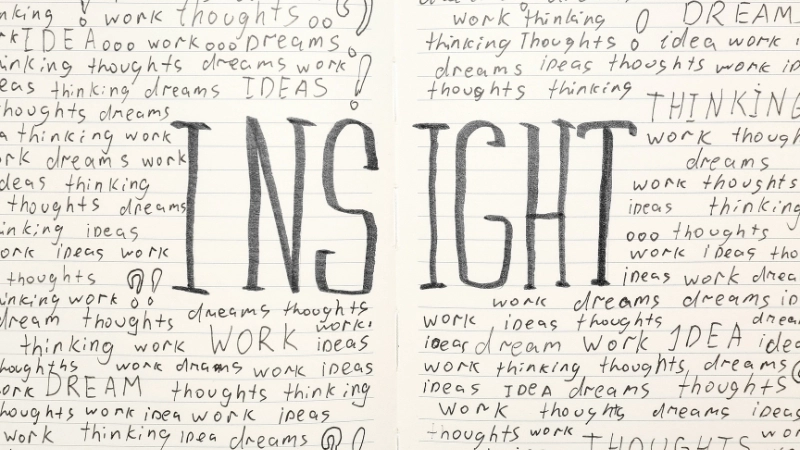 inking ! work thoughts oo ?!
rk IDEA ooo work ooo Dreams
inking thoughts dreams work !
eas thinking dreams IDEAS
houghts dreams
a thinking work
rk dreams work
deas thinking
thoughts dreams
inking ideas
ork ideas work
thoughts ?!
inking work
dreams thoughts
dream thoughts work!
thinking work WORK ideas
houghths work dreams work ideas
ork DREAM thoughts thinking
houghts work idea work ideas
work thinking idea dreams ?!
INSIGHT
work thinking DREAM
thinking Thoughts o idea work i
dreams ideas thoughts work id
thoughts thinking
THINKING
work though
dreams
work thoughts
ideas thinking
ooo thoughts
work ideas tho
ideas work drea
work dreams dreams id
work ideas thoughts dream
idear dream Work IDEA idea
work thinking thoughts dreams
ideas IDEA dreams thoughts
work thoughts dreams ideas
thoughts work THOUGHTS work